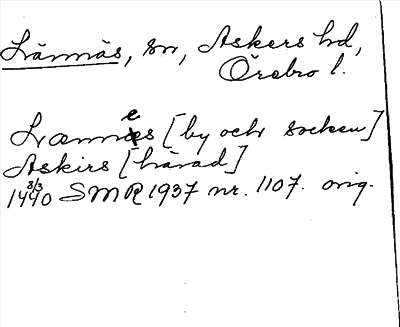 Lännäs, sn, Askers hd,
Örebro l.
Lænnes [by och socken]
Askirs [härad]
1440 3/3 SMR 1937 nr. 1107. orig.